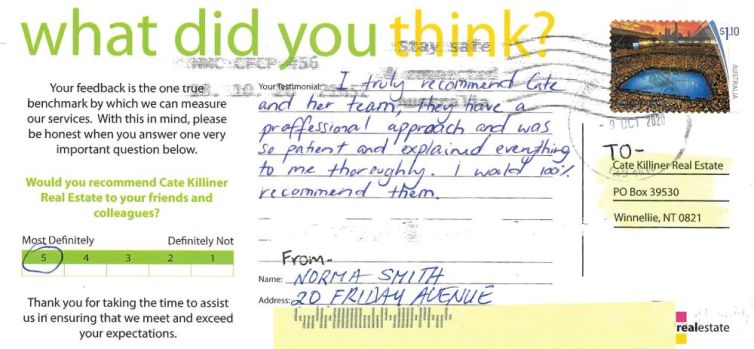 what did you think?
Stay safe
$1.10
AUSTRALIA
Your feedback is the one true
benchmark by which we can measure
our services. With this in mind, please
be honest when you answer one very
important question below.
Would you recommend Cate Killiner
Real Estate to your friends and
colleagues?
Most Definitely Definitely Not
5 4 3 2 1
Thank you for taking the time to assist
us in ensuring that we meet and exceed
your expectations.
Your Testimonial: I truly recommend Cate
and her team, They have a
proffessional approach and was
so patient and explained everything
to me thoroughly. I would 100%
recommend them.
From-
Name: NORMA SMITH
Address: 20 FRIDAY AVENUE
OCT 2020
TO-
Cate Killiner Real Estate
PO Box 39530
Winnellie, NT 0821
realestate